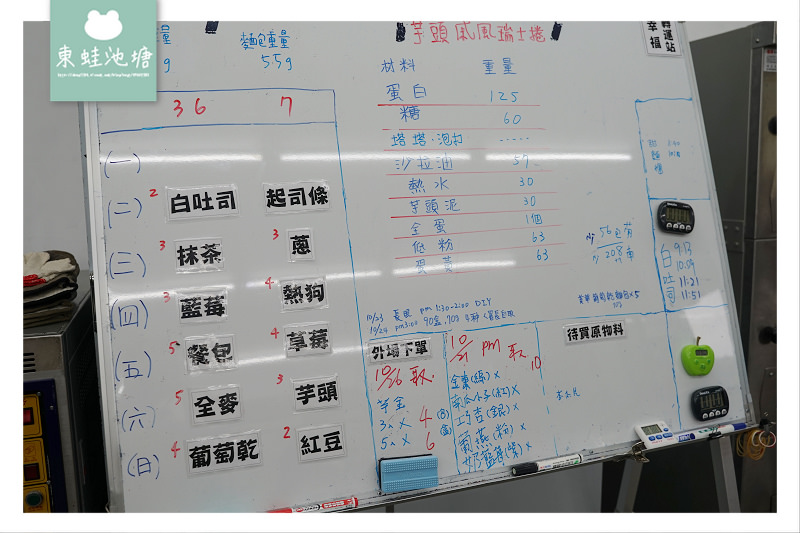 東蛙池塘
重量
麵包重量
g
55g
36
7
(一)
(二) 2 白吐司 起司條
(三) 3 抹茶 3 蔥
(四) 3 藍莓 4 熱狗
(五) 5 餐包 4 草莓
(六) 5 全麥 3 芋頭
(日) 4 葡萄乾 2 紅豆
芋頭戚風瑞士捲
材料 重量
蛋白 125
糖 60
塔塔、泡打 -----
沙拉油 57
熱水 30
芋頭泥 30
全蛋 1個
低粉 63
蛋黃 63
幸福
轉運站
白吐司
9:13
10:09
11:21
11:51
10/23 pm 1:30-2:00 DIY
10/24 pm3:00 90盒
外場下單
10/26 取
芋金
3入 x 4
5入 x 6
10/21 pm 取
10
金棗(綠) x
南瓜子(紅) x
巧吉(銀) x
葡燕(粉) x
奶藍莓(紫) x
待買原物料
杏仁片